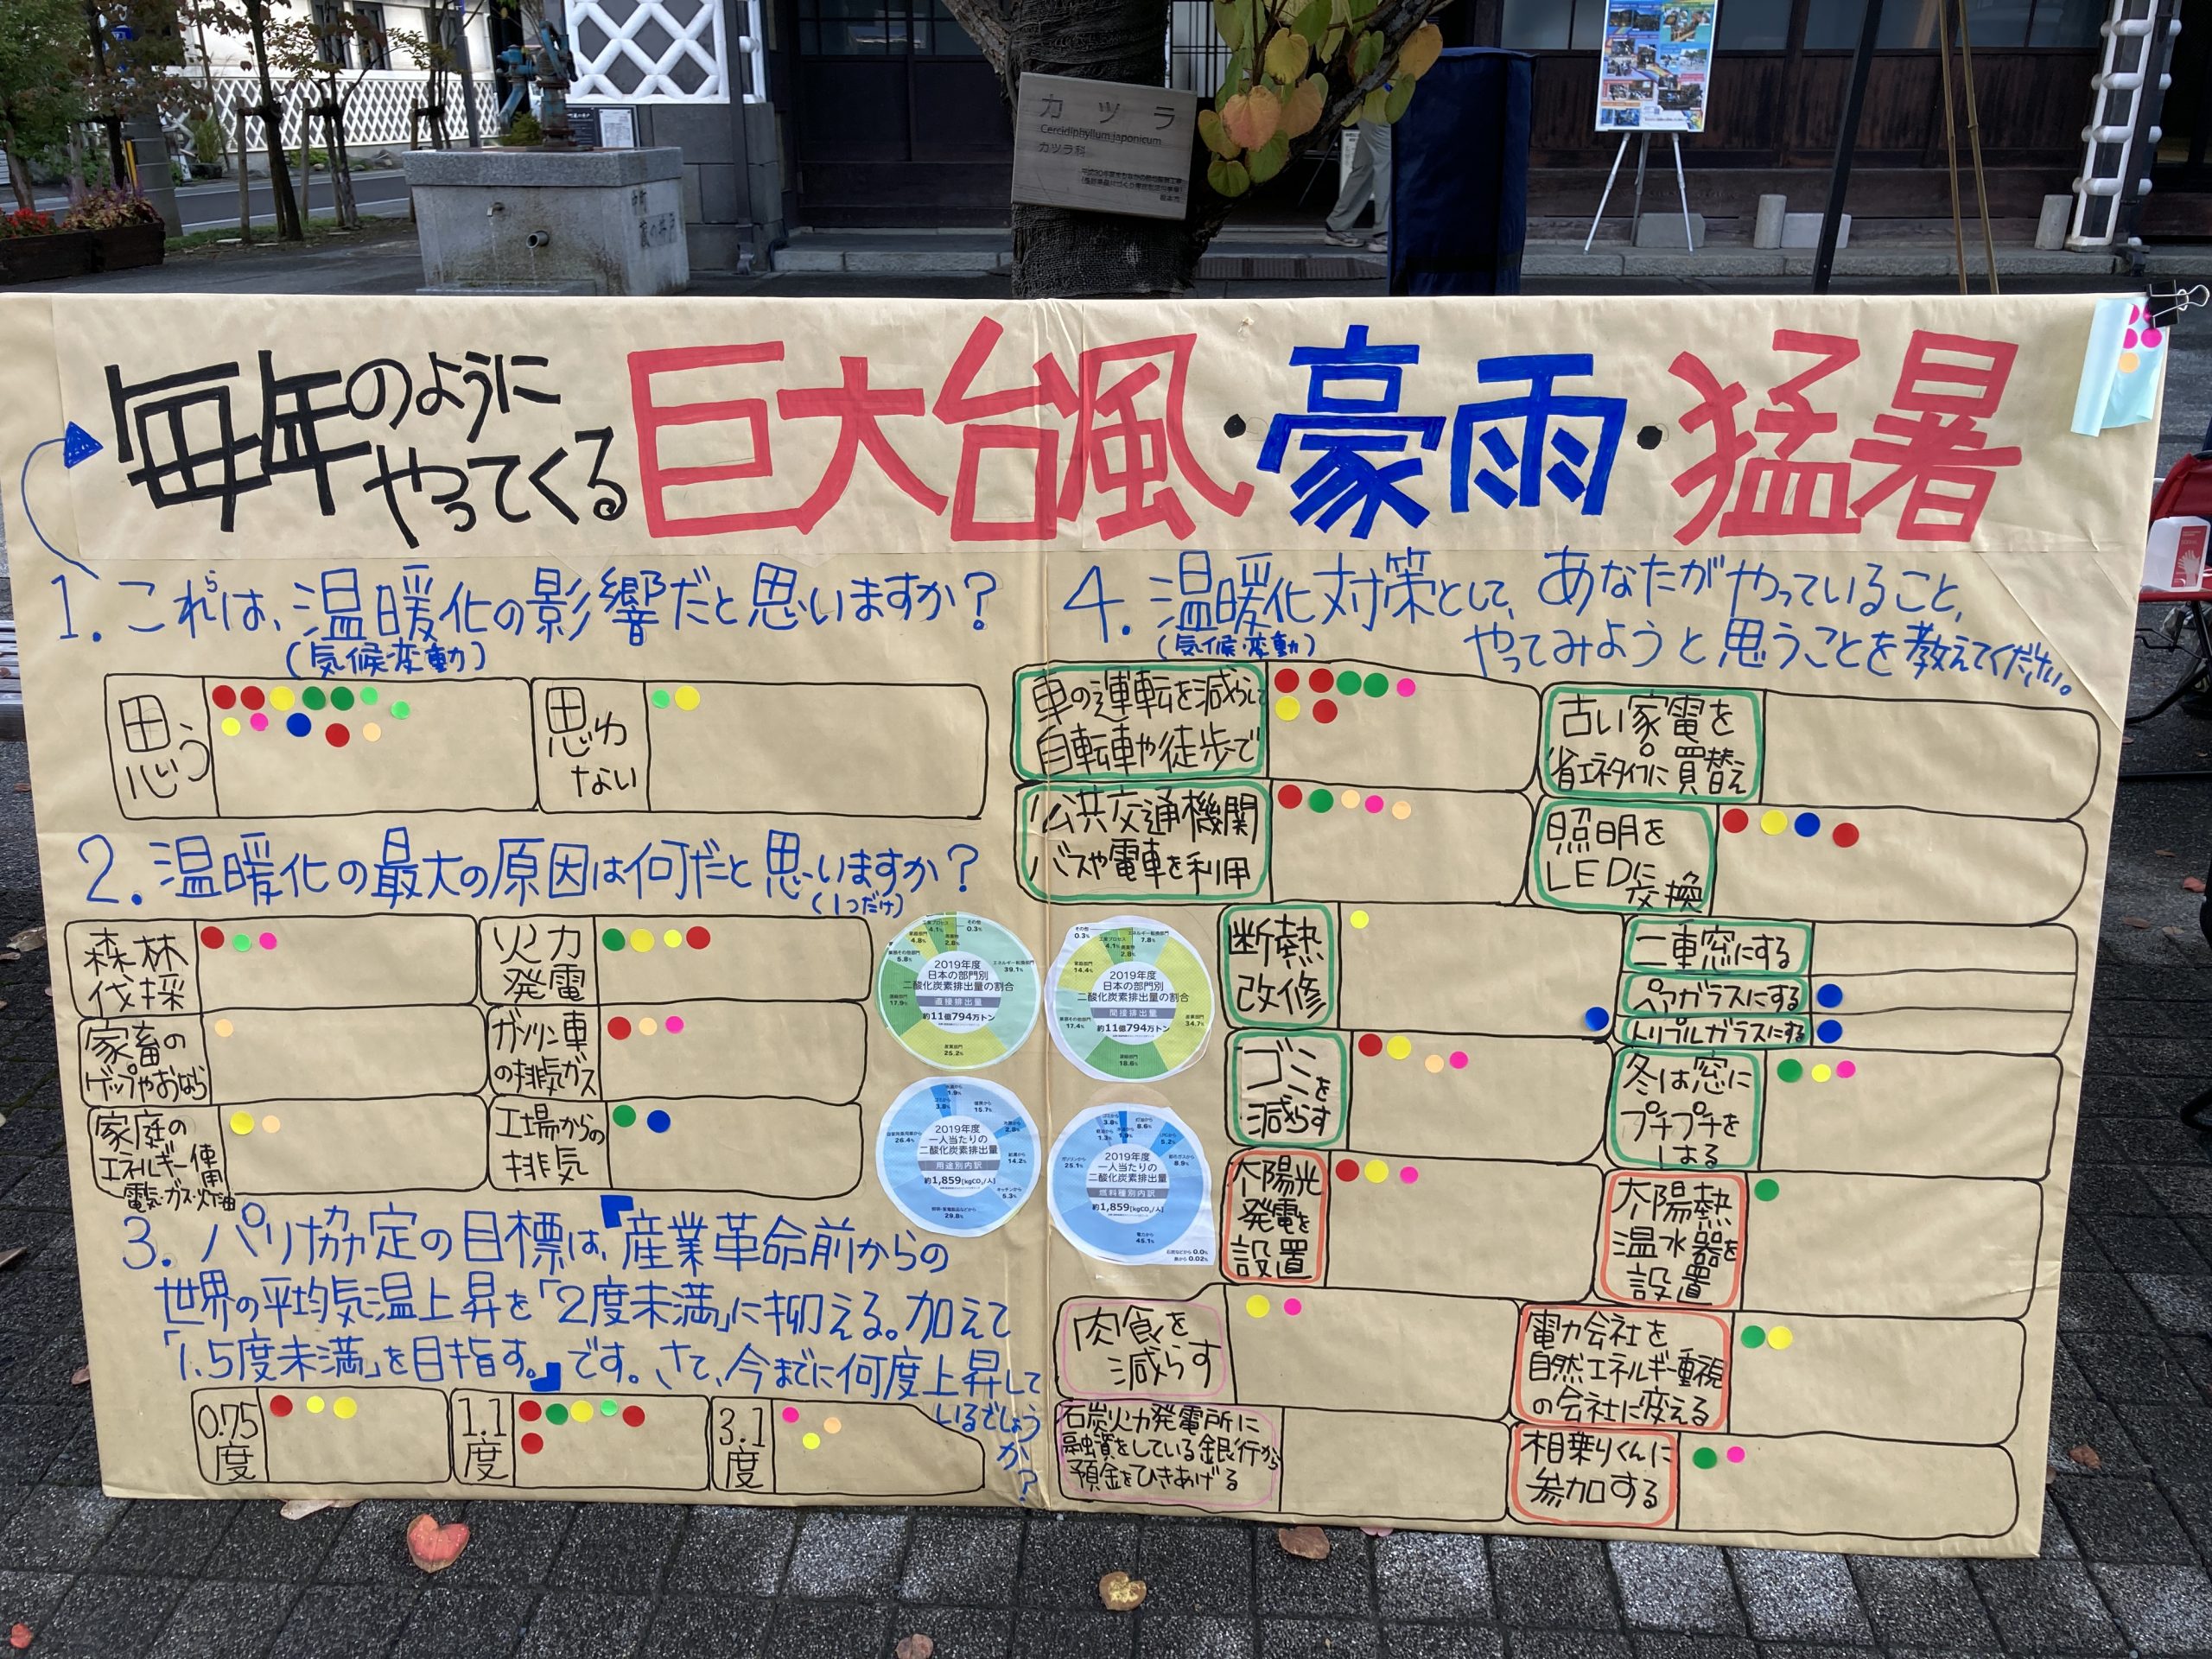 カツラ
Cercidiphyllum japonicum
カツラ科
毎年のように
やってくる
巨大台風・豪雨・猛暑
1. これらは、温暖化の影響だと思いますか?
(気候変動)
思う
思わ
ない
2. 温暖化の最大の原因は何だと思いますか?
(1つだけ)
森林
伐採
火力
発電
家畜の
ゲップやおなら
ガソリン車
の排気ガス
家庭の
エネルギー使用
電気・ガス・灯油
工場からの
排気
2019年度
日本の部門別
二酸化炭素排出量の割合
直接排出量
約11億794万トン
39.1%
25.2%
17.9%
5.8%
4.8%
4.1%
2.8%
その他
0.3%
2019年度
一人当たりの
二酸化炭素排出量
用途別内訳
約1,859[kgCO₂/人]
15.7%
14.2%
5.3%
29.8%
26.4%
3.8%
1.9%
3. パリ協定の目標は、『産業革命前からの
世界の平均気温上昇を「2度未満」に抑える。加えて
「1.5度未満」を目指す。』です。さて、今までに何度上昇して
いるでしょう
か?
0.75
度
1.1
度
3.1
度
4. 温暖化対策として、あなたがやっていること、
(気候変動)
やってみようと思うことを教えてください。
車の運転を減らして
自転車や徒歩で
古い家電を
省エネタイプに買替え
公共交通機関
バスや電車を利用
照明を
LEDに
交換
2019年度
日本の部門別
二酸化炭素排出量の割合
間接排出量
約11億794万トン
その他
0.3%
7.8%
34.7%
18.6%
17.4%
14.4%
4.1%
2.8%
2019年度
一人当たりの
二酸化炭素排出量
燃料種別内訳
約1,859[kgCO₂/人]
8.6%
5.2%
8.9%
45.1%
25.1%
1.3%
3.8%
断熱
改修
二重窓にする
ペアガラスにする
トリプルガラスにする
ゴミを
減らす
冬は窓に
プチプチを
はる
太陽光
発電を
設置
太陽熱
温水器を
設置
肉食を
減らす
電力会社を
自然エネルギー重視
の会社に変える
石炭火力発電所に
融資をしている銀行から
預金をひきあげる
相乗りくんに
参加する